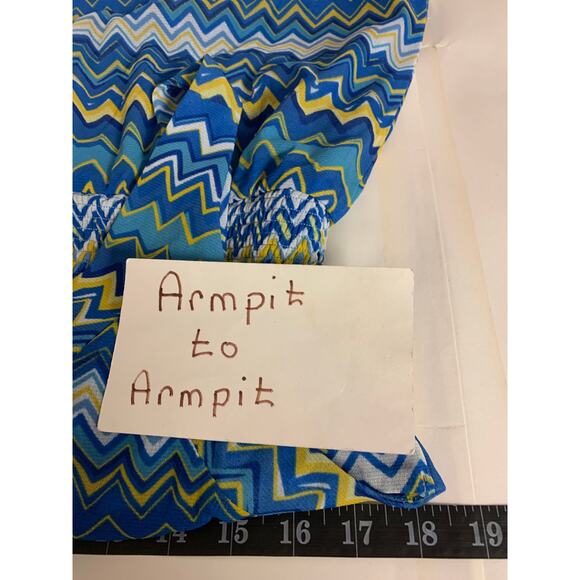 Armpit
to
Armpit
14 15 16 17 18 19